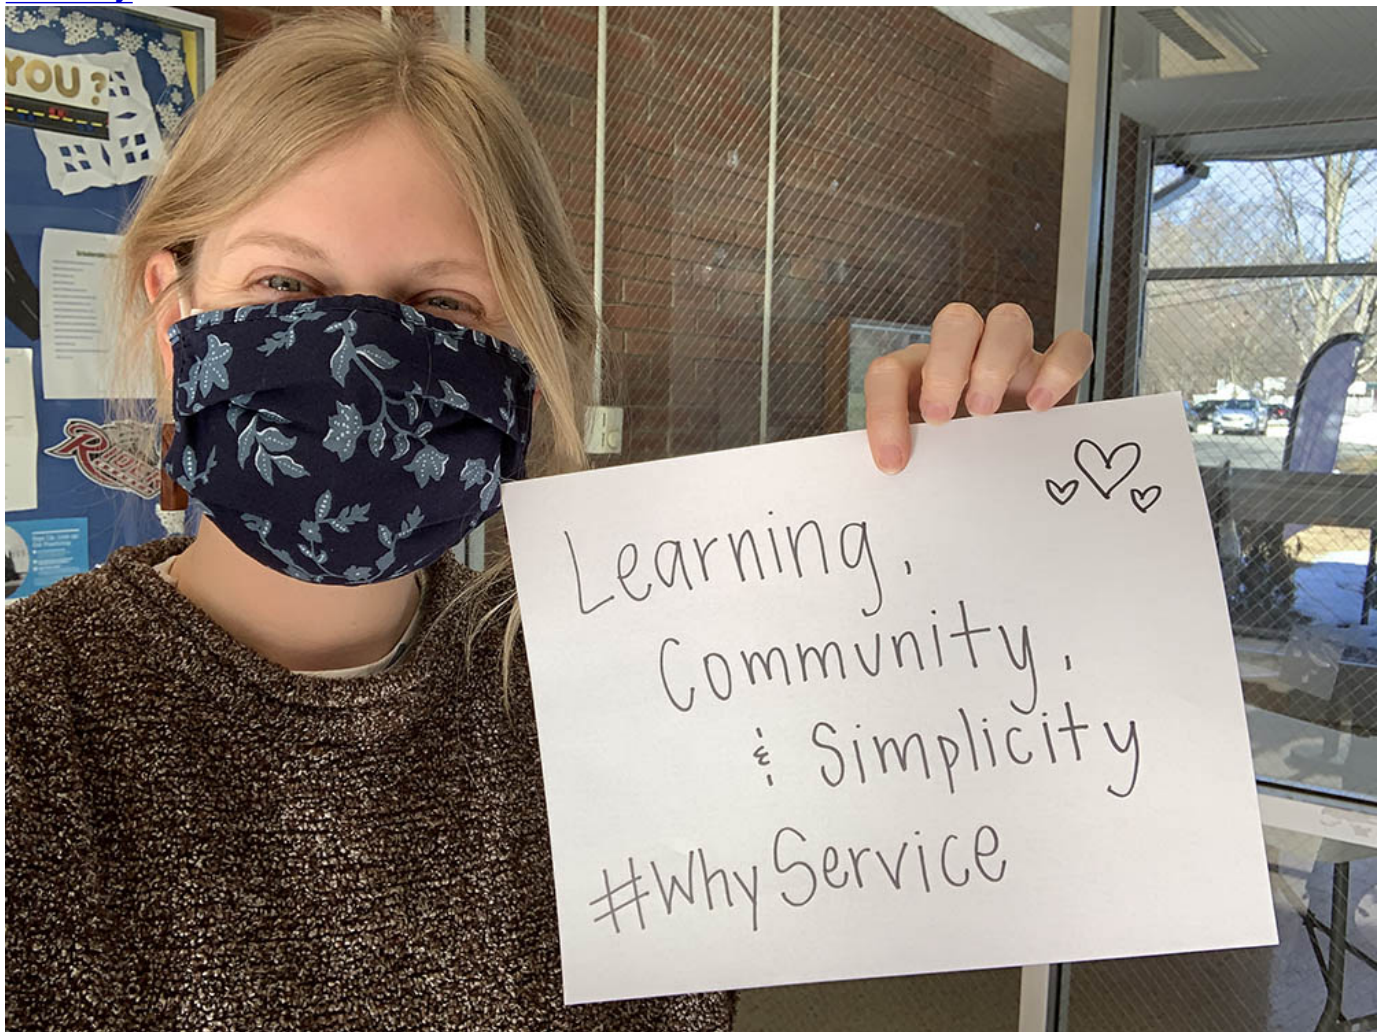 YOU?
Learning,
Community,
& Simplicity
#WhyService